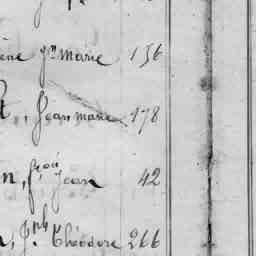 ène Jn Marie 156
t, Jean marie 178
n, fçois Jean 42
n, Jph Théodore 266